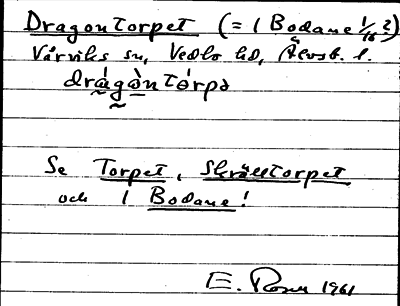 Dragontorpet (= 1 Bodane 1/16?)
Vårviks sn, Vedbo hd, Älvsb. l.
dràgòntórpə
Se Torpet, Skrälltorpet
och 1 Bodane!
E. Rosen 1961